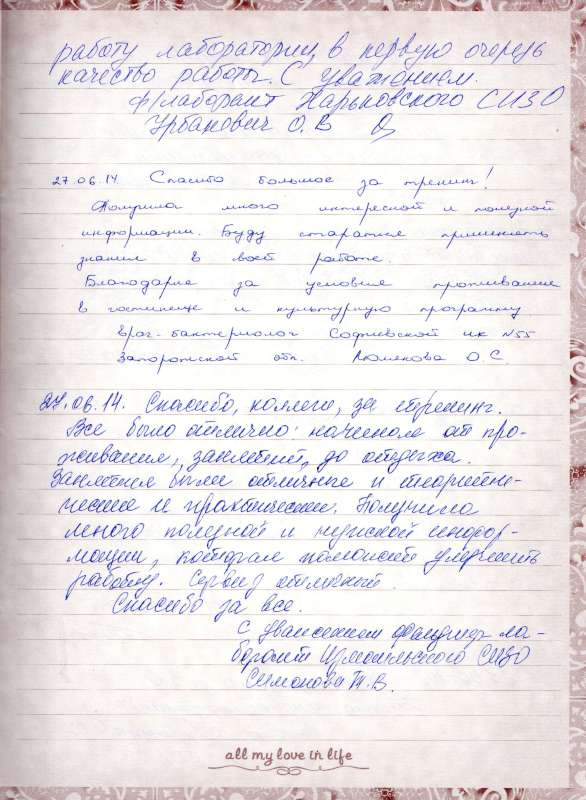 работу лаборатории, в первую очередь
качество работы. С уважением.
ф/лаборант Харьковского СИЗО
Урбанович О.В
27.06.14 Спасибо большое за тренинг!
Получила много интересной и полезной
информации. Буду старатся применять
знания в своей работе.
Благодарна за условия проживания
в гостинице и культурную программу.
врач-бактериолог Софиевской ик №55
Запорожской обл. О.С.
27.06.14. Спасибо, коллеги, за тренинг.
Все было отлично: начиная от про-
живания, занятий, до отдыха.
Занятия были отличные и теорити-
ческие и практические. Получила
много полезной и нужной инфор-
мации, которая поможет улучшить
работу. Сервиз отличный.
Спасибо за все.
С уважением фельдшер ла-
борант Измаильского СИЗО
Симонова Т.В.
all my love in life